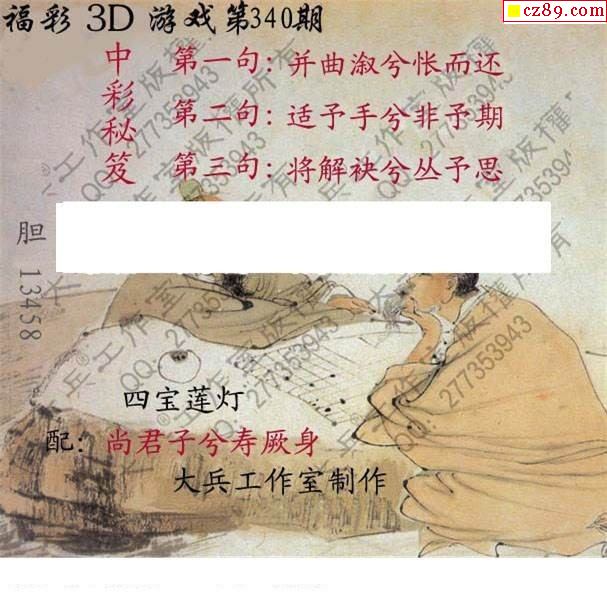 福彩 3D 游戏第340期
cz89.com
中彩秘笈
第一句:并曲溆兮怅而还
第二句:适予手兮非予期
第三句:将解袂兮丛予思
胆 13458
四宝莲灯
配:尚君子兮寿厥身
大兵工作室制作
大兵工作室版權所有
QQ:277353943